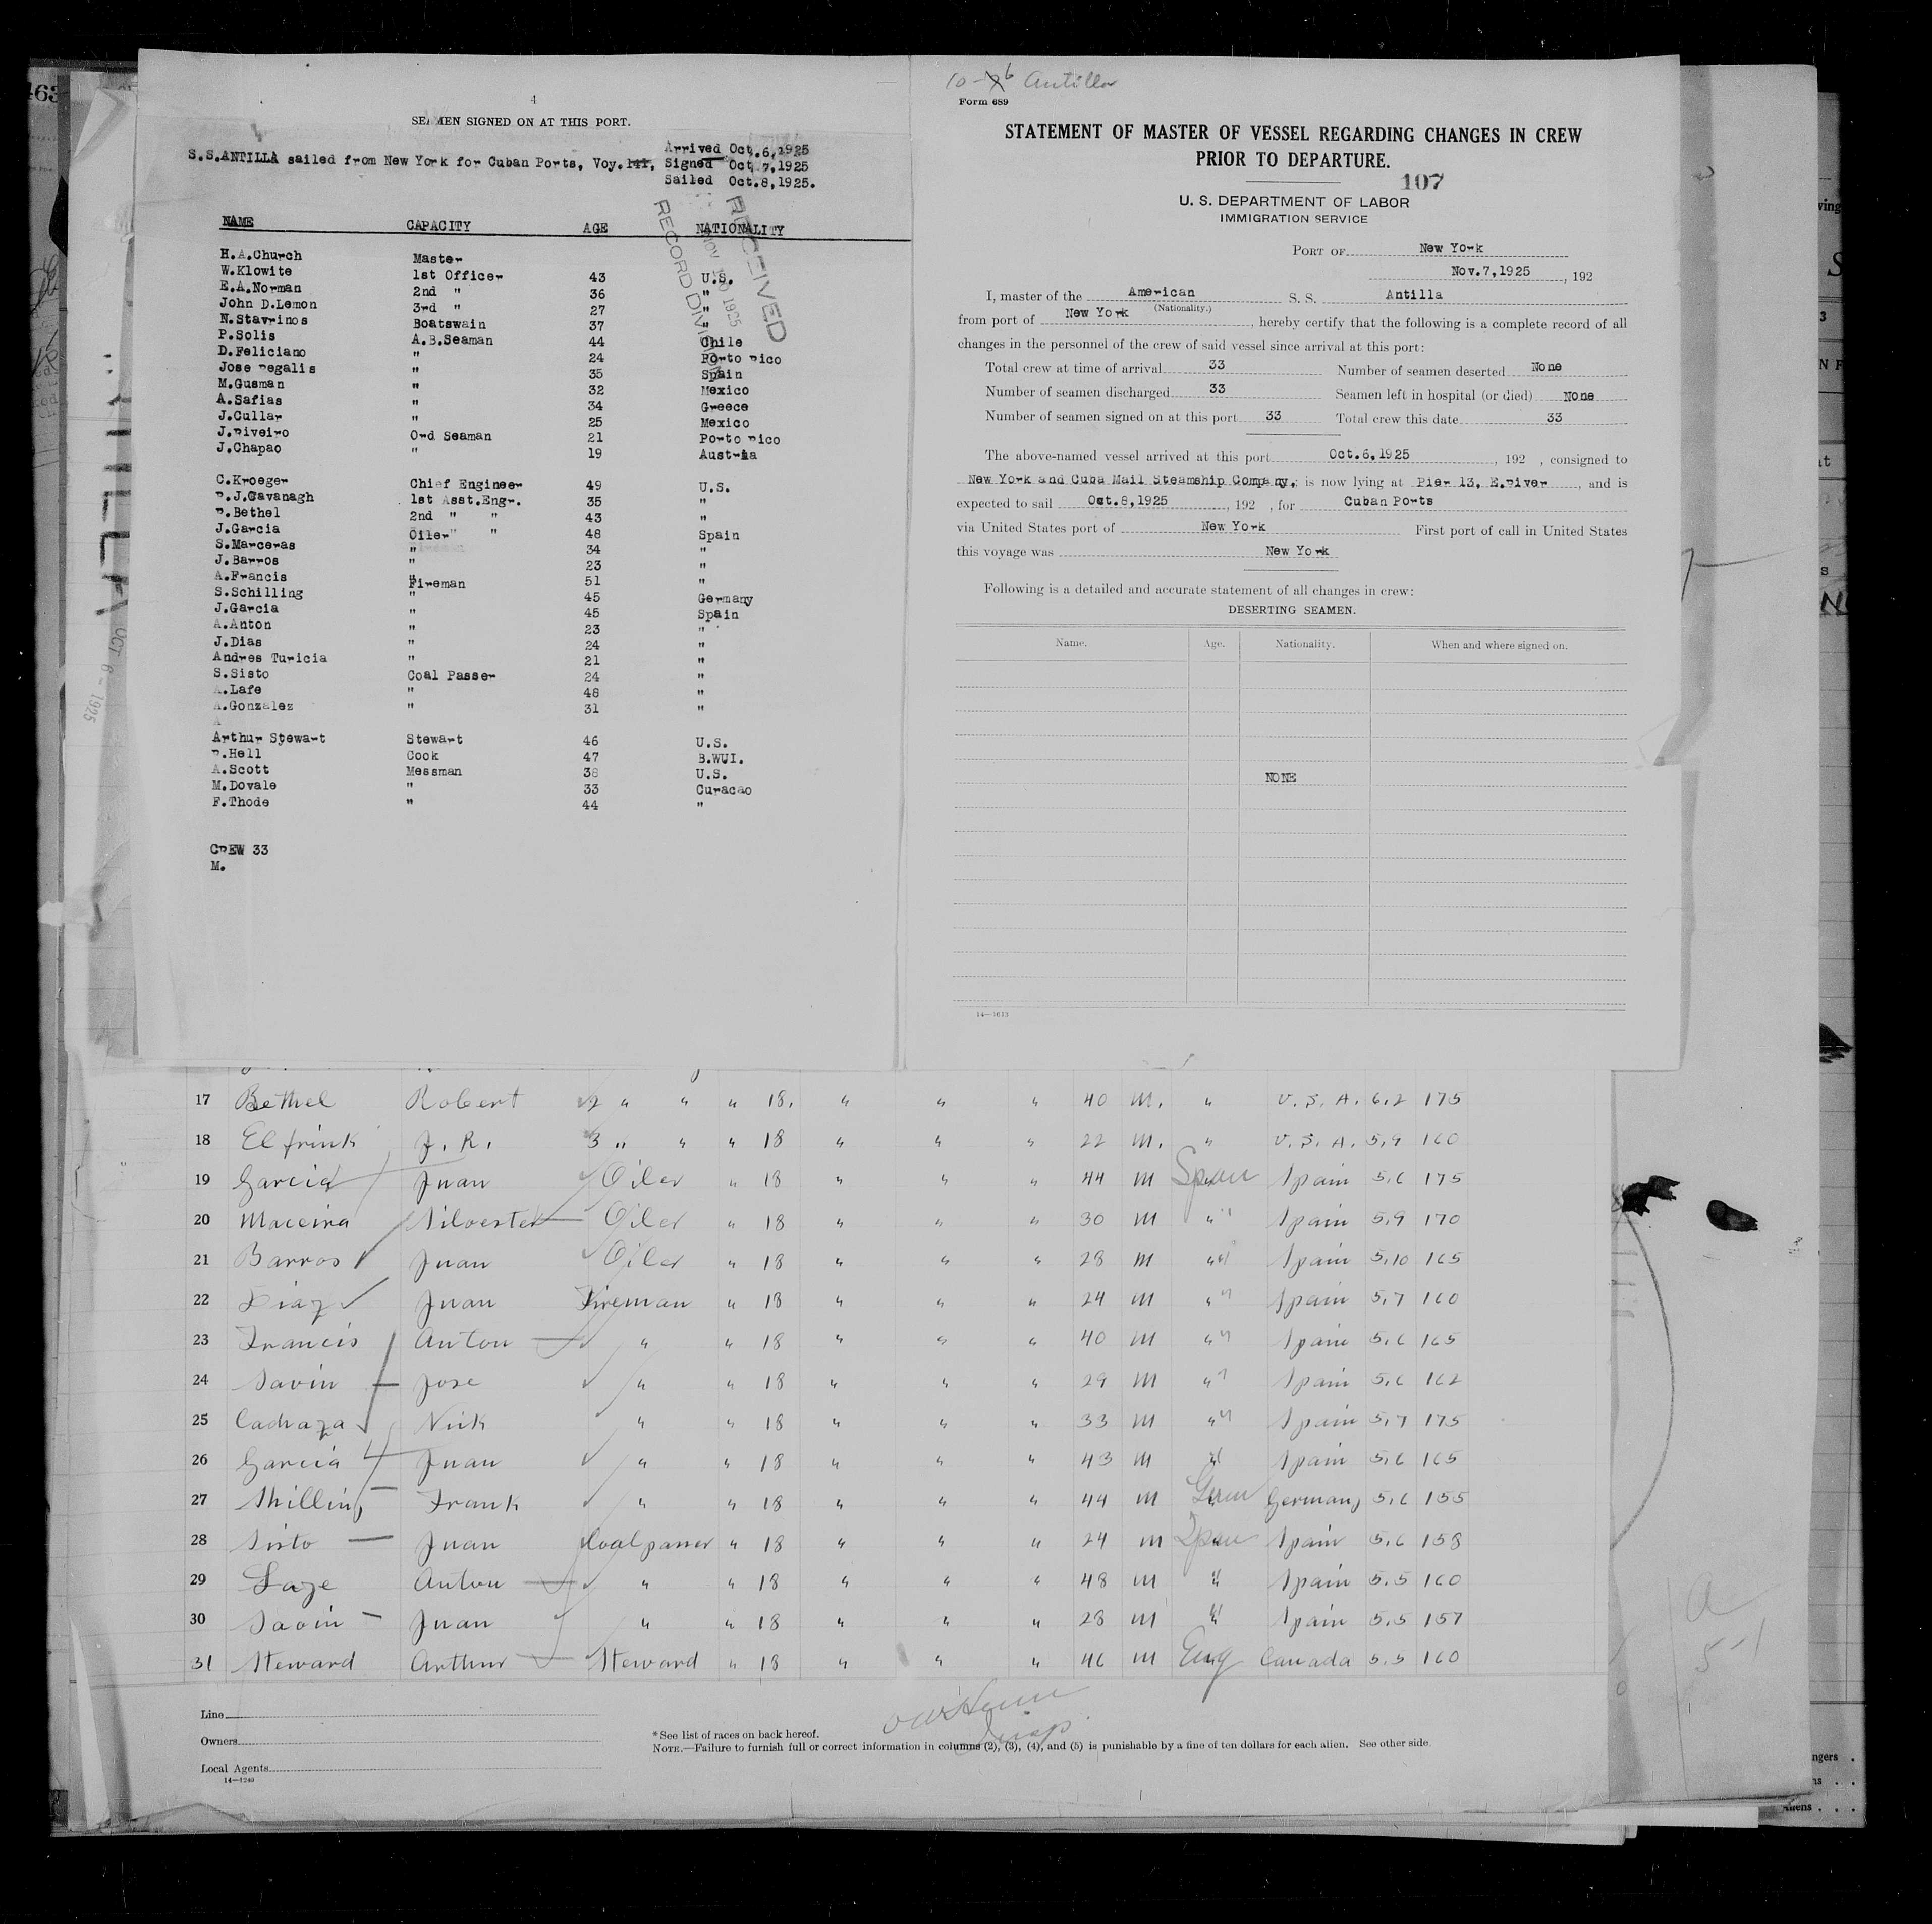 4
SEAMEN SIGNED ON AT THIS PORT.
S.S.ANTILLA sailed from New York for Cuban Ports, Voy.141,
Arrived Oct.6,1925
Signed Oct.7,1925
Sailed Oct.8,1925.
RECEIVED
NOV 1925
RECORD DIVISION
NAME CAPACITY AGE NATIONALITY
H.A.Church Master
W.Klowite 1st Officer 43 U.S.
E.A.Norman 2nd " 36 "
John D.Lemon 3rd " 27 "
N.Stavrinos Boatswain 37 "
P.Solis A.B.Seaman 44 Chile
D.Feliciano " 24 Porto Rico
Jose Regalis " 35 Spain
M.Gusman " 32 Mexico
A.Safias " 34 Greece
J.Cullar " 25 Mexico
J.Riveiro Ord Seaman 21 Porto Rico
J.Chapao " 19 Austria
C.Kroeger Chief Engineer 49 U.S.
R.J.Cavanagh 1st Asst.Engr. 35 "
R.Bethel 2nd " " 43 "
J.Garcia Oiler " " 48 Spain
S.Marceras " 34 "
J.Barros " 23 "
A.Francis Fireman 51 "
S.Schilling " 45 Germany
J.Garcia " 45 Spain
A.Anton " 23 "
J.Dias " 24 "
Andres Turicia " 21 "
S.Sisto Coal Passer 24 "
A.Lafe " 48 "
A.Gonzalez " 31 "
A
Arthur Stewart Stewart 46 U.S.
R.Hell Cook 47 B.WUI.
A.Scott Messman 38 U.S.
M.Dovale " 33 Curacao
F.Thode " 44 "
CREW 33
M.
10-6 Antilla
Form 689
STATEMENT OF MASTER OF VESSEL REGARDING CHANGES IN CREW
PRIOR TO DEPARTURE.
107
U. S. DEPARTMENT OF LABOR
IMMIGRATION SERVICE
PORT OF New York
Nov.7,1925, 192
I, master of the American S. S. Antilla
(Nationality.)
from port of New York, hereby certify that the following is a complete record of all
changes in the personnel of the crew of said vessel since arrival at this port:
Total crew at time of arrival 33 Number of seamen deserted None
Number of seamen discharged 33 Seamen left in hospital (or died) None
Number of seamen signed on at this port 33 Total crew this date 33
The above-named vessel arrived at this port Oct.6,1925, 192 , consigned to
New York and Cuba Mail Steamship Company, ; is now lying at Pier 13, E.River, and is
expected to sail Oct.8,1925, 192 , for Cuban Ports
via United States port of New York First port of call in United States
this voyage was New York
Following is a detailed and accurate statement of all changes in crew:
DESERTING SEAMEN.
Name. Age. Nationality. When and where signed on.
NONE
14—1613
OCT 6 - 1925
17 Bethel Robert 2 " " " 18. " " " 40 M. " U.S.A. 6.2 175
18 Elfrink J. R. 3 " " " 18 " " " 22 M. " U.S.A. 5,9 160
19 Garcia Juan Oiler " 18 " " " 44 M Span Spain 5.6 175
20 Maceira Silvester Oiler " 18 " " " 30 M " Spain 5.9 170
21 Barros Juan Oiler " 18 " " " 28 M " Spain 5.10 165
22 Diaz Juan Fireman " 18 " " " 24 M " Spain 5.7 160
23 Francis Anton " " 18 " " " 40 M " Spain 5.6 165
24 Savin Jose " " 18 " " " 29 M " Spain 5.6 162
25 Cachaza Nick " " 18 " " " 33 M " Spain 5.7 175
26 Garcia Juan " " 18 " " " 43 M " Spain 5.6 165
27 Shilling Frank " " 18 " " " 44 M Germ Germany 5.6 155
28 Sisto Juan Coal passer " 18 " " " 24 M Span Spain 5.6 158
29 Laze Anton " " 18 " " " 48 M " Spain 5.5 160
30 Savin Juan " " 18 " " " 28 M " Spain 5.5 157
31 Steward Arthur Steward " 18 " " " 46 M Eng Canada 5.5 160
Line
Owners
Local Agents
14—1240
*See list of races on back hereof.
NOTE.—Failure to furnish full or correct information in columns (2), (3), (4), and (5) is punishable by a fine of ten dollars for each alien. See other side.